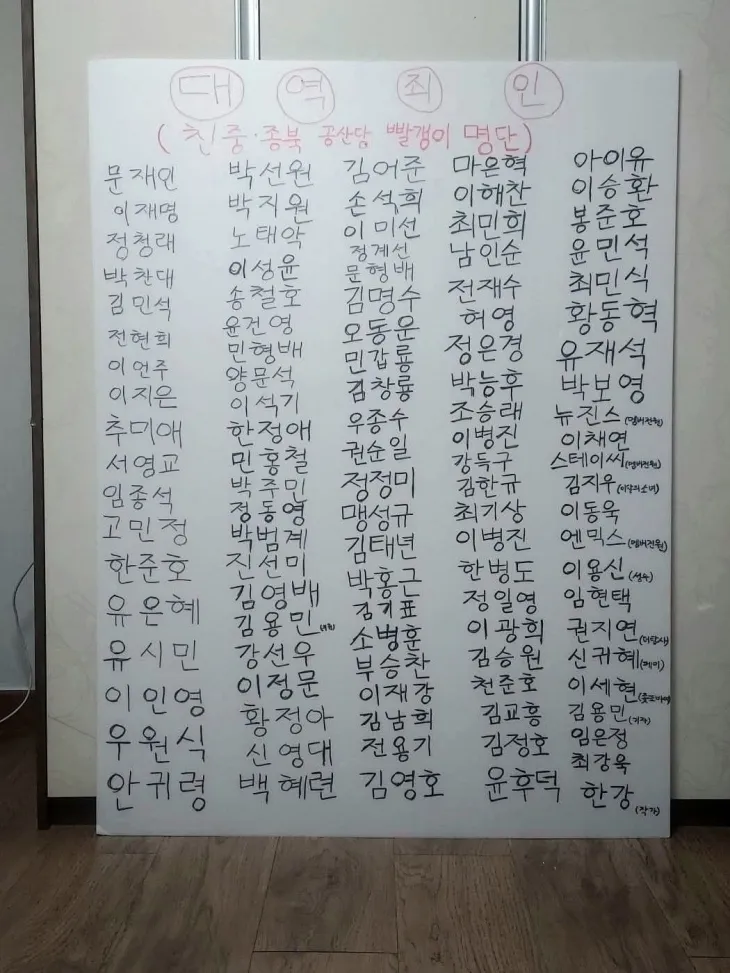 대 역 죄 인
( 친중·종북 공산당 빨갱이 명단)
문재인
이재명
정청래
박찬대
김민석
전현희
이언주
이지은
추미애
서영교
임종석
고민정
한준호
유은혜
유시민
이인영
우원식
안귀령
박선원
박지원
노태악
이성윤
송철호
윤건영
민형배
양문석
이석기
한정애
민홍철
박주민
정동영
박범계
진선미
김영배
김용민
강선우
이정문
황정아
신영대
백혜련
김어준
손석희
이미선
정계선
문형배
김명수
오동운
민갑룡
김창룡
우종수
권순일
정정미
맹성규
김태년
박홍근
김기표
소병훈
부승찬
이재강
김남희
전용기
김영호
마은혁
이해찬
최민희
남인순
전재수
허영
정은경
박능후
조승래
이병진
강득구
김한규
최기상
이병진
한병도
정일영
이광희
김승원
천준호
김교흥
김정호
윤후덕
아이유
이승환
봉준호
윤민석
최민식
황동혁
유재석
박보영
뉴진스(멤버전원)
이채연
스테이씨(멤버전원)
김지우(이달의소녀)
이동욱
엔믹스(멤버전원)
이용신(성우)
임현택
권지연(더탐사)
신귀혜(메이)
이세현
김용민(기자)
임은정
최강욱
한강(작가)